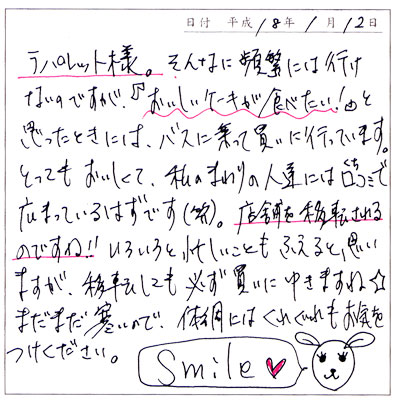 日付 平成18年1月12日
ラパレット様。そんなに頻繁には行け
ないのですが、『おいしいケーキが食べたい!』と
思ったときには、バスに乗って買いに行っています。
とってもおいしくて、私のまわりの人達には口コミで
広まっているはずです(笑)。店舗を移転される
のですね!! いろいろと、忙しいこともふえると思い
ますが、移転しても必ず買いにゆきますね☆
まだまだ寒いので、体調にはくれぐれもお気を
つけください。
Smile